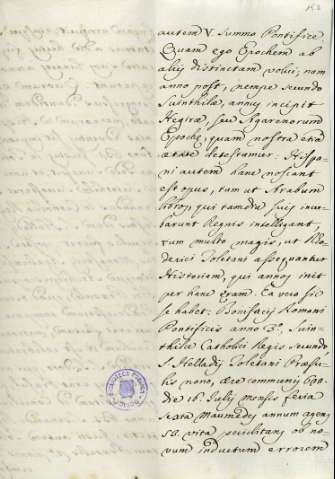 autem V. Summo Pontifice
Quam ego Epochem ab
alijs distinctam volui; nam
anno post, nempe secundo
Suinthilæ, annus incipit
Hegiræ, seu Agarenorum
Epoche, quam nostra etiã
ætate detestamur. Hispa-
ni autem hanc noscant
est opus, tum ut Arabum
libros, qui tamdiu suis inva-
larunt Regnis intelligant,
tum multo magis, ut Ro-
derici Toletani assequantur
Historiam, qui annos init
per hanc eram. Ea vero sic
se habet. Bonifacij Romani
Pontificis anno 3º. Suin-
thilæ Catholici Regis secundo
S. Helladij Toletani Præsu-
lis nono, æræ communis 660.
die 16. Julij mensis feria
sexta Maumedes annum agens
vita periclitans ob no-
vum inductum errorem